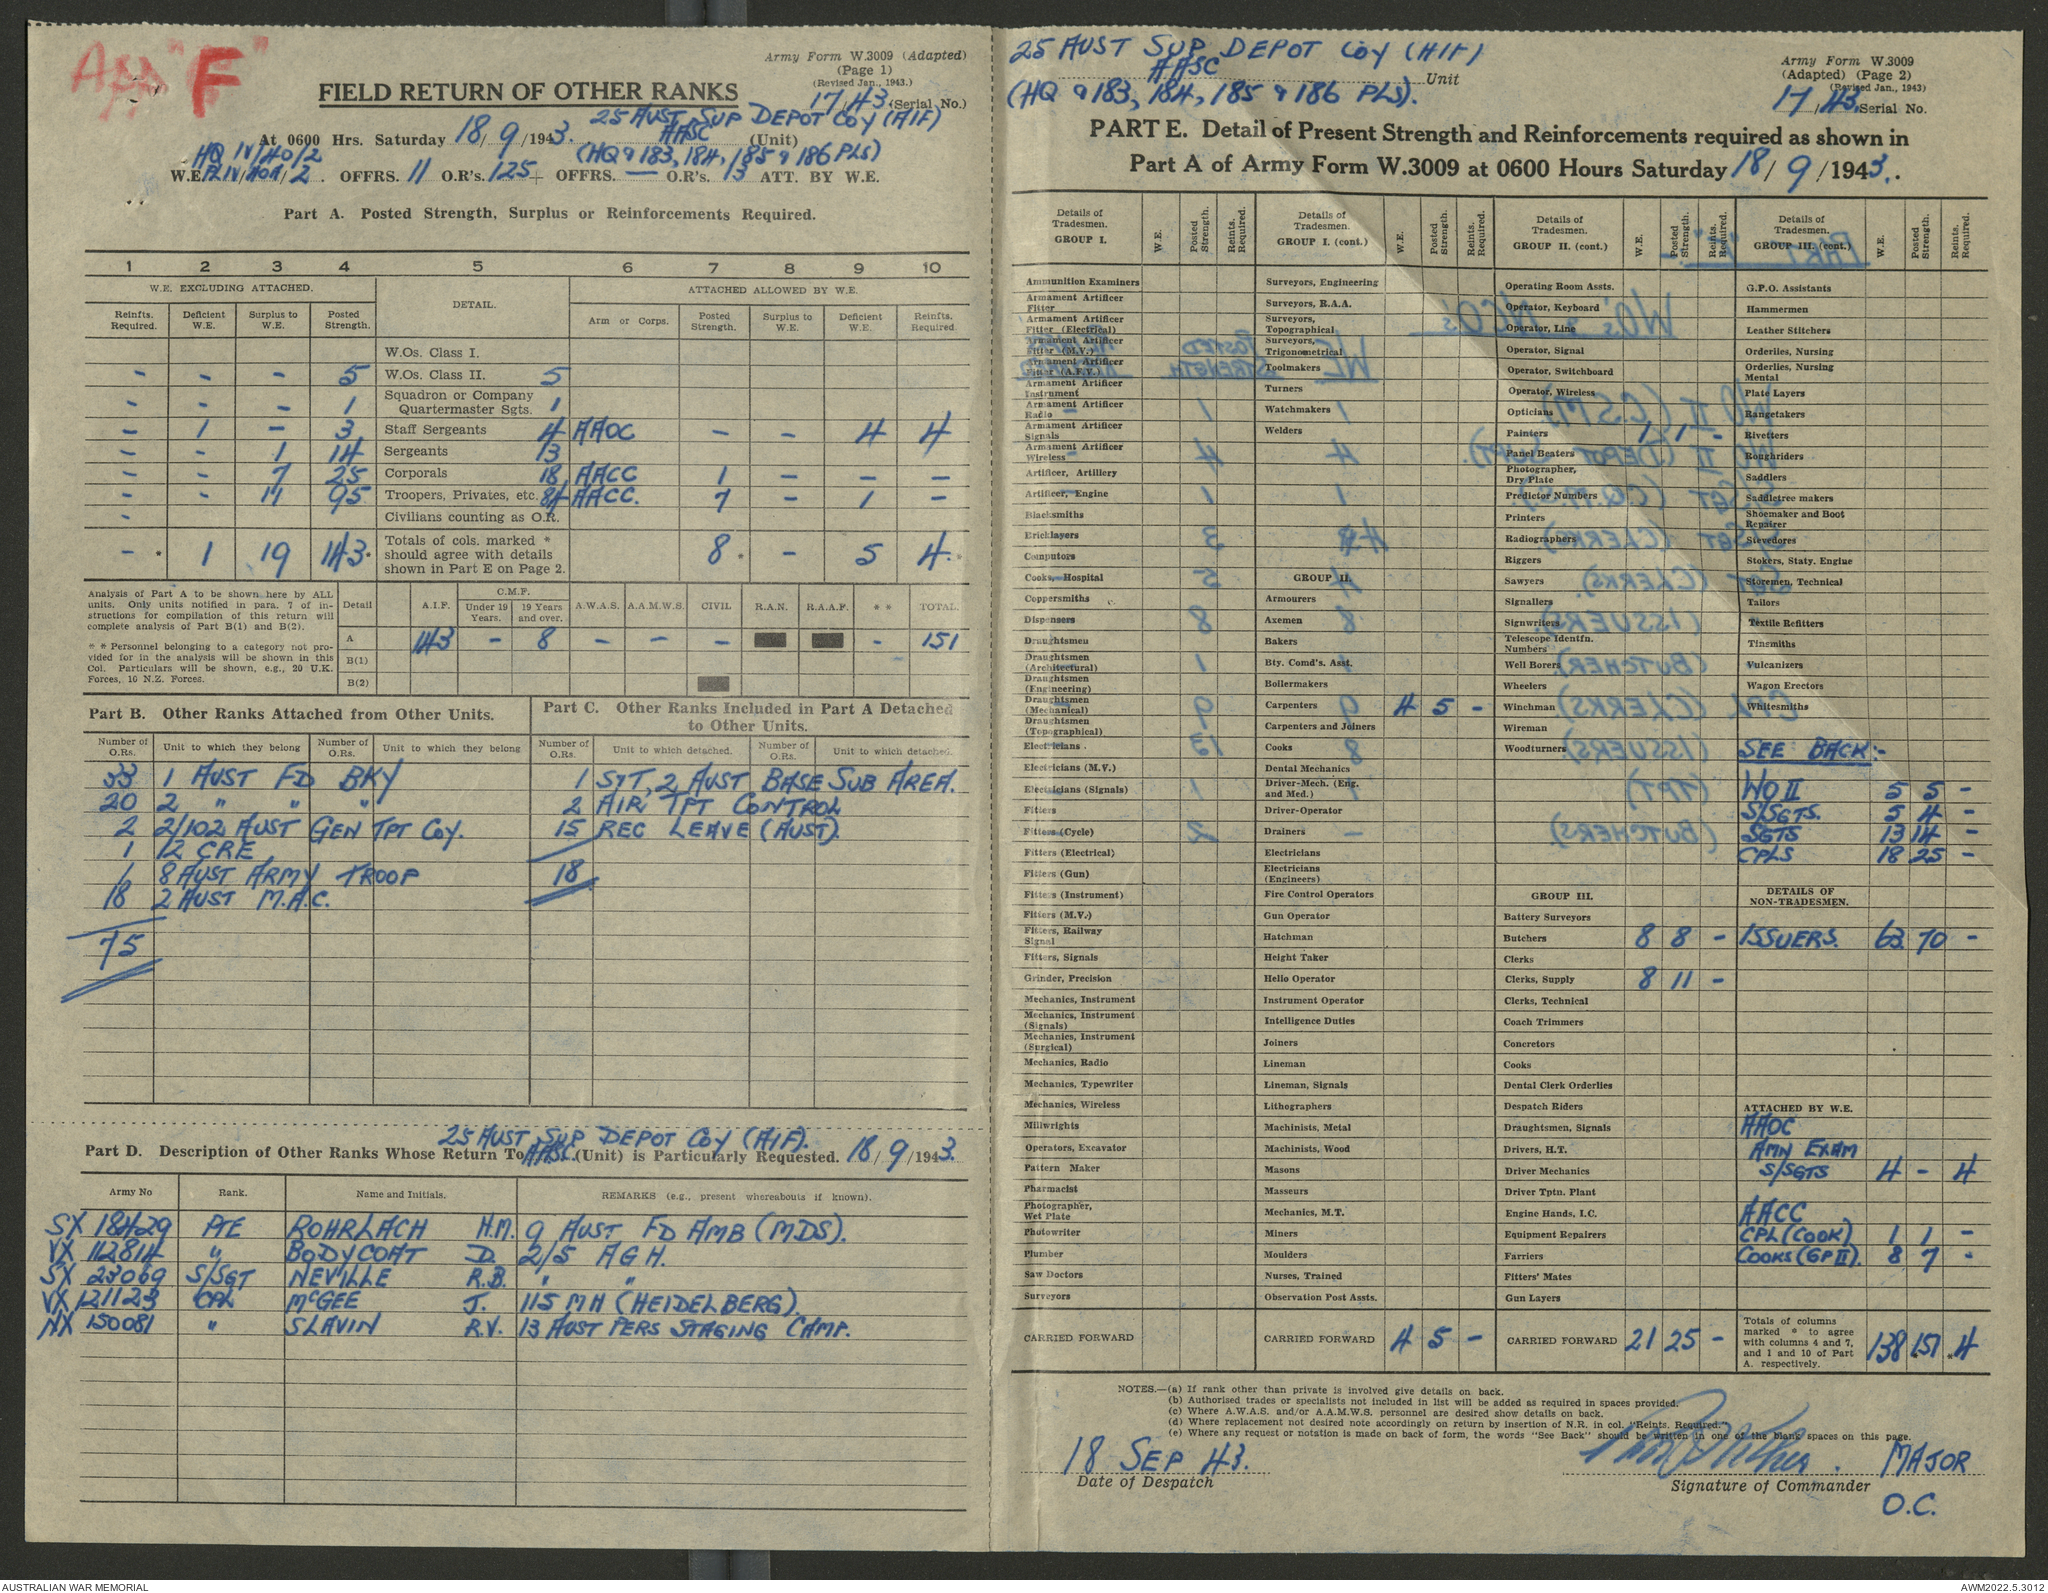 App "F"
Army Form W.3009 (Adapted)
(Page 1)
(Revised Jan., 1943.)
17/43 (Serial No.)
FIELD RETURN OF OTHER RANKS
25 AUST SUP DEPOT COY (AIF)
AASC
At 0600 Hrs. Saturday 18/9/1943. (Unit)
(HQ & 183, 184, 185 & 186 PLS)
HQ IV/40/2
W.E. PL IV/40A/2. OFFRS. 11 O.R's. 125 + OFFRS. — O.R's. 13 ATT. BY W.E.
Part A. Posted Strength, Surplus or Reinforcements Required.
1 2 3 4 5 6 7 8 9 10
W.E. EXCLUDING ATTACHED. DETAIL. ATTACHED ALLOWED BY W.E.
Reinfts. Required. Deficient W.E. Surplus to W.E. Posted Strength. Arm or Corps. Posted Strength. Surplus to W.E. Deficient W.E. Reinfts. Required
W.Os. Class I.
- - - 5 W.Os. Class II. 5
- - - 1 Squadron or Company Quartermaster Sgts. 1
- 1 - 3 Staff Sergeants 4 AAOC - - 4 4
- - 1 14 Sergeants 13
- - 7 25 Corporals 18 AACC 1 - - -
- - 11 95 Troopers, Privates, etc. 84 AACC. 7 - 1 -
- Civilians counting as O.R.
- * 1 19 143* Totals of cols. marked * should agree with details shown in Part E on Page 2. 8* - 5 4*
Analysis of Part A to be shown here by ALL units. Only units notified in para. 7 of instructions for compilation of this return will complete analysis of Part B(1) and B(2).
* * Personnel belonging to a category not provided for in the analysis will be shown in this Col. Particulars will be shown, e.g., 20 U.K. Forces, 10 N.Z. Forces.
Detail A.I.F. C.M.F. Under 19 Years. 19 Years and over. A.W.A.S. A.A.M.W.S. CIVIL R.A.N. R.A.A.F. * * TOTAL.
A 143 - 8 - - - - 151
B(1) -
B(2)
Part B. Other Ranks Attached from Other Units.
Number of O.Rs. Unit to which they belong Number of O.Rs. Unit to which they belong
33 1 AUST FD BKY
20 2 " " "
2 2/102 AUST GEN TPT COY.
1 12 CRE
1 8 AUST ARMY TROOP
18 2 AUST M.A.C.
75
Part C. Other Ranks Included in Part A Detached to Other Units.
Number of O.Rs. Unit to which detached. Number of O.Rs. Unit to which detached.
1 S/T, 2 AUST BASE SUB AREA.
2 AIR TPT CONTROL
15 REC LEAVE (AUST).
18
25 AUST SUP DEPOT COY (AIF).
Part D. Description of Other Ranks Whose Return To AASC (Unit) is Particularly Requested. 18/9/1943.
Army No Rank. Name and Initials. REMARKS (e.g., present whereabouts if known).
SX 18429 PTE ROHRLACH H.M. 9 AUST FD AMB (MDS).
VX 112814 " BODYCOAT D. 2/5 AGH.
SX 23069 S/SGT NEVILLE R.B. " "
VX 121123 CPL McGEE J. 115 MH (HEIDELBERG).
NX 150081 " SLAVIN R.V. 13 AUST PERS STAGING CAMP.
25 AUST SUP DEPOT COY (AIF)
AASC Unit
(HQ & 183, 184, 185 & 186 PLS).
Army Form W.3009
(Adapted) (Page 2)
(Revised Jan., 1943)
17/43. Serial No.
PART E. Detail of Present Strength and Reinforcements required as shown in
Part A of Army Form W.3009 at 0600 Hours Saturday 18/9/1943.
Details of Tradesmen. GROUP I. W.E. Posted Strength. Reints. Required.
Ammunition Examiners
Armament Artificer Fitter
Armament Artificer Fitter (Electrical)
Armament Artificer Fitter (M.V.)
Armament Artificer Fitter (A.F.V.)
Armament Artificer Instrument
Armament Artificer Radio
Armament Artificer Signals
Armament Artificer Wireless
Artificer, Artillery
Artificer, Engine
Blacksmiths
Bricklayers
Computors
Cooks, Hospital
Coppersmiths
Dispensers
Draughtsmen
Draughtsmen (Architectural)
Draughtsmen (Engineering)
Draughtsmen (Mechanical)
Draughtsmen (Topographical)
Electricians
Electricians (M.V.)
Electricians (Signals)
Fitters
Fitters (Cycle)
Fitters (Electrical)
Fitters (Gun)
Fitters (Instrument)
Fitters (M.V.)
Fitters, Railway Signal
Fitters, Signals
Grinder, Precision
Mechanics, Instrument
Mechanics, Instrument (Signals)
Mechanics, Instrument (Surgical)
Mechanics, Radio
Mechanics, Typewriter
Mechanics, Wireless
Millwrights
Operators, Excavator
Pattern Maker
Pharmacist
Photographer, Wet Plate
Photowriter
Plumber
Saw Doctors
Surveyors
CARRIED FORWARD
Details of Tradesmen. GROUP I. (cont.) W.E. Posted Strength. Reints. Required.
Surveyors, Engineering
Surveyors, R.A.A.
Surveyors, Topographical
Surveyors, Trigonometrical
Toolmakers
Turners
Watchmakers
Welders
GROUP II.
Armourers
Axemen
Bakers
Bty. Comd's. Asst.
Boilermakers
Carpenters 4 5 -
Carpenters and Joiners
Cooks
Dental Mechanics
Driver-Mech. (Eng. and Med.)
Driver-Operator
Drainers
Electricians
Electricians (Engineers)
Fire Control Operators
Gun Operator
Hatchman
Height Taker
Helio Operator
Instrument Operator
Intelligence Duties
Joiners
Lineman
Lineman, Signals
Lithographers
Machinists, Metal
Machinists, Wood
Masons
Masseurs
Mechanics, M.T.
Miners
Moulders
Nurses, Trained
Observation Post Assts.
CARRIED FORWARD 4 5 -
Details of Tradesmen. GROUP II. (cont.) W.E. Posted Strength. Reints. Required.
Operating Room Assts.
Operator, Keyboard
Operator, Line
Operator, Signal
Operator, Switchboard
Operator, Wireless
Opticians
Painters 1 1 -
Panel Beaters
Photographer, Dry Plate
Predictor Numbers
Printers
Radiographers
Riggers
Sawyers
Signallers
Signwriters
Telescope Identfn. Numbers
Well Borers
Wheelers
Winchman
Wireman
Woodturners
GROUP III.
Battery Surveyors
Butchers 8 8 -
Clerks
Clerks, Supply 8 11 -
Clerks, Technical
Coach Trimmers
Concretors
Cooks
Dental Clerk Orderlies
Despatch Riders
Draughtsmen, Signals
Drivers, H.T.
Driver Mechanics
Driver Tptn. Plant
Engine Hands, I.C.
Equipment Repairers
Farriers
Fitters' Mates
Gun Layers
CARRIED FORWARD 21 25 -
Details of Tradesmen. GROUP III. (cont.) W.E. Posted Strength. Reints. Required.
G.P.O. Assistants
Hammermen
Leather Stitchers
Orderlies, Nursing
Orderlies, Nursing Mental
Plate Layers
Rangetakers
Rivetters
Roughriders
Saddlers
Saddletree makers
Shoemaker and Boot Repairer
Stevedores
Stokers, Staty. Engine
Storemen, Technical
Tailors
Textile Refitters
Tinsmiths
Vulcanizers
Wagon Erectors
Whitesmiths
SEE BACK:-
WO II 5 5 -
S/SGTS. 5 4 -
SGTS 13 14 -
CPLS 18 25 -
DETAILS OF NON-TRADESMEN.
ISSUERS. 63 70 -
ATTACHED BY W.E.
AAOC
AMN EXAM
S/SGTS 4 - 4
AACC
CPL (COOK) 1 1 -
COOKS (GP II). 8 7 -
Totals of columns marked * to agree with columns 4 and 7, and 1 and 10 of Part A. respectively. 138 *151 *4
NOTES.—(a) If rank other than private is involved give details on back.
(b) Authorised trades or specialists not included in list will be added as required in spaces provided.
(c) Where A.W.A.S. and/or A.A.M.W.S. personnel are desired show details on back.
(d) Where replacement not desired note accordingly on return by insertion of N.R. in col. "Reints. Required."
(e) Where any request or notation is made on back of form, the words "See Back" should be written in one of the blank spaces on this page.
18 SEP 43.
Date of Despatch
MAJOR
Signature of Commander
O.C.
AUSTRALIAN WAR MEMORIAL
AWM2022.5.3012